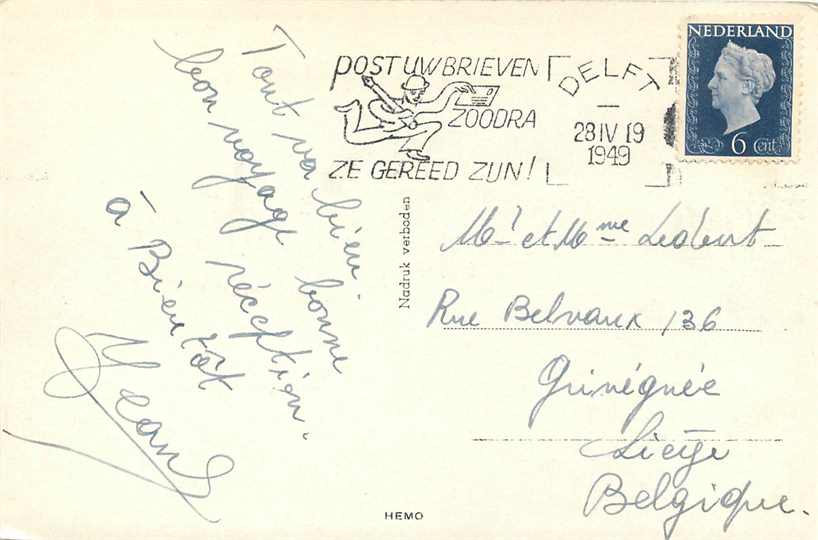 Tout va bien.
bon voyage bonne
réception.
à Bientôt
Jean
POST UW BRIEVEN
ZOODRA
ZE GEREED ZIJN!
DELFT
28 IV 19
1949
NEDERLAND
6 Cent
Nadruk verboden
Mr et Mme
Rue Belvaux 136
Grivégnée
Liège
Belgique.
HEMO